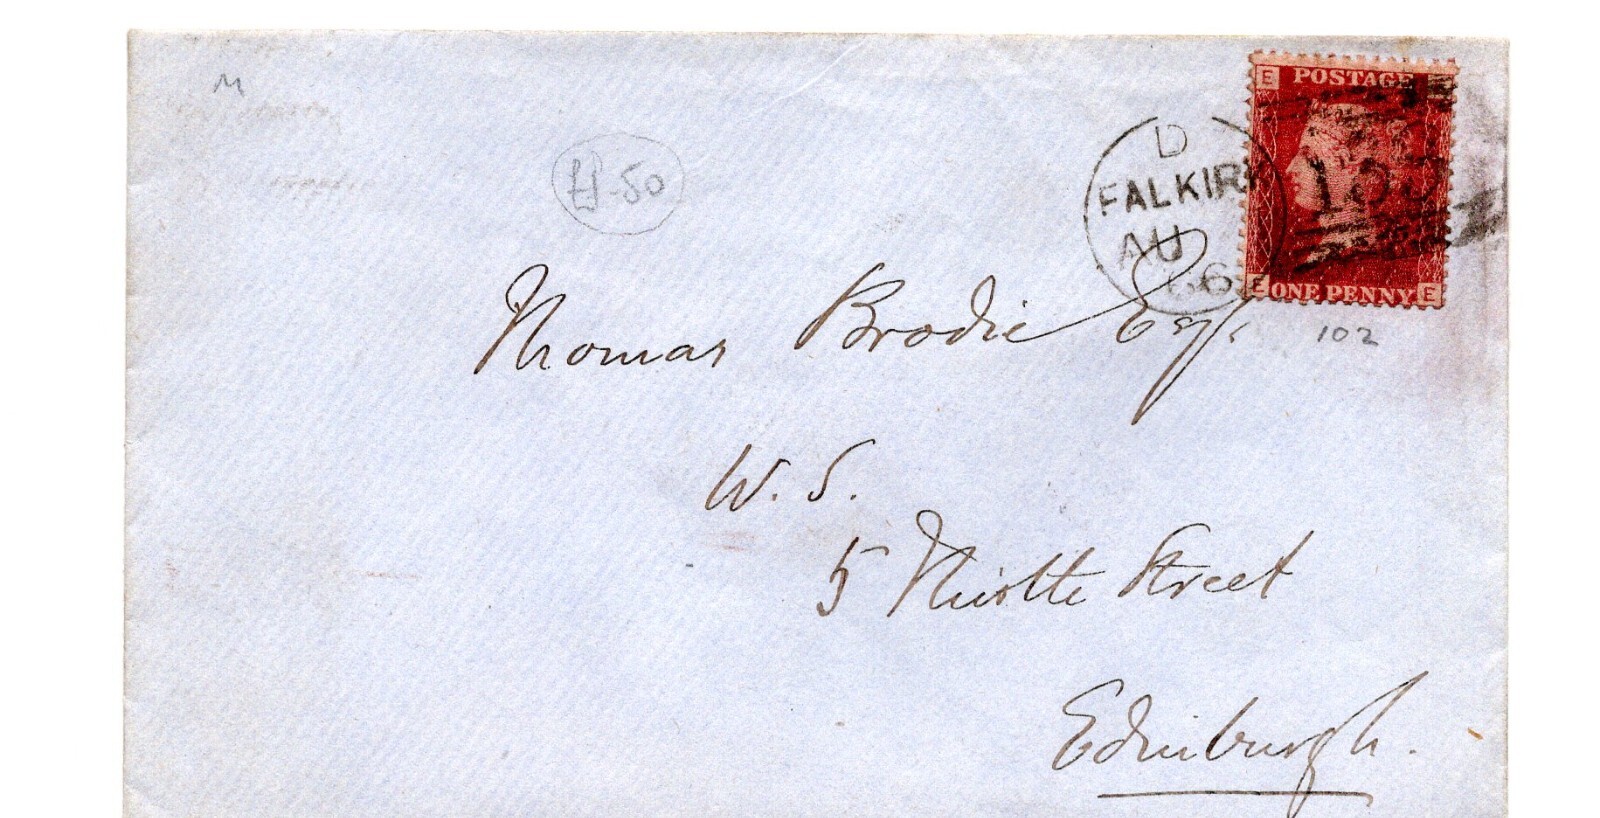 E POSTAGE
M
£1-50
D
FALKIRK
AU
66
E ONE PENNY E
102
Thomas Brodie Esqr.
W. S.
5 Thistle Street
Edinburgh.